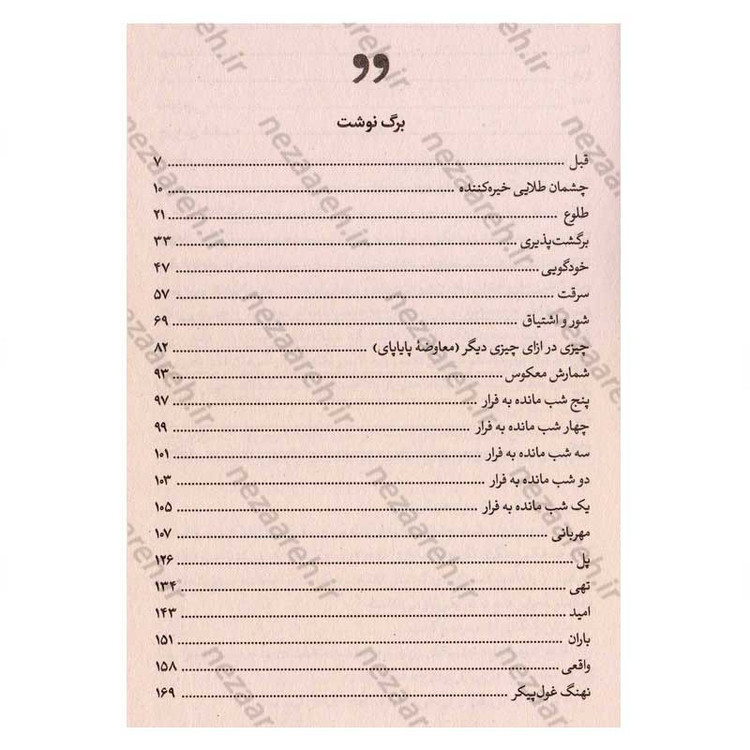 برگ نوشت
قبل ........ ۷
چشمان طلایی خیره‌کننده ........ ۱۰
طلوع ........ ۲۱
برگشت‌پذیری ........ ۳۳
خودگویی ........ ۴۷
سرقت ........ ۵۷
شور و اشتیاق ........ ۶۹
چیزی در ازای چیزی دیگر (معاوضهٔ پایاپای) ........ ۸۲
شمارش معکوس ........ ۹۳
پنج شب مانده به فرار ........ ۹۷
چهار شب مانده به فرار ........ ۹۹
سه شب مانده به فرار ........ ۱۰۱
دو شب مانده به فرار ........ ۱۰۳
یک شب مانده به فرار ........ ۱۰۵
مهربانی ........ ۱۰۷
پل ........ ۱۲۶
تهی ........ ۱۳۴
امید ........ ۱۴۳
باران ........ ۱۵۱
واقعی ........ ۱۵۸
نهنگ غول‌پیکر ........ ۱۶۹
nezaareh.ir